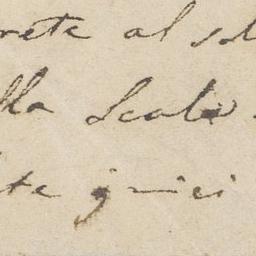 rete al sol
lla Scala
te